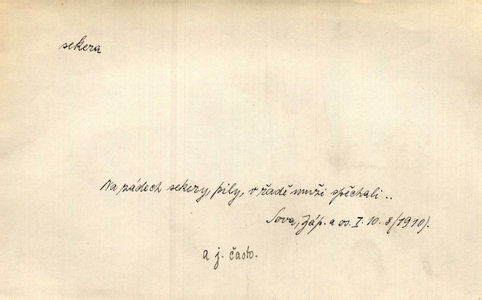 sekera
Na zádech sekery, pily, v řadě muži spěchali..
Sova, Záp. a os. I. 10. 8 (1910).
a j. často.